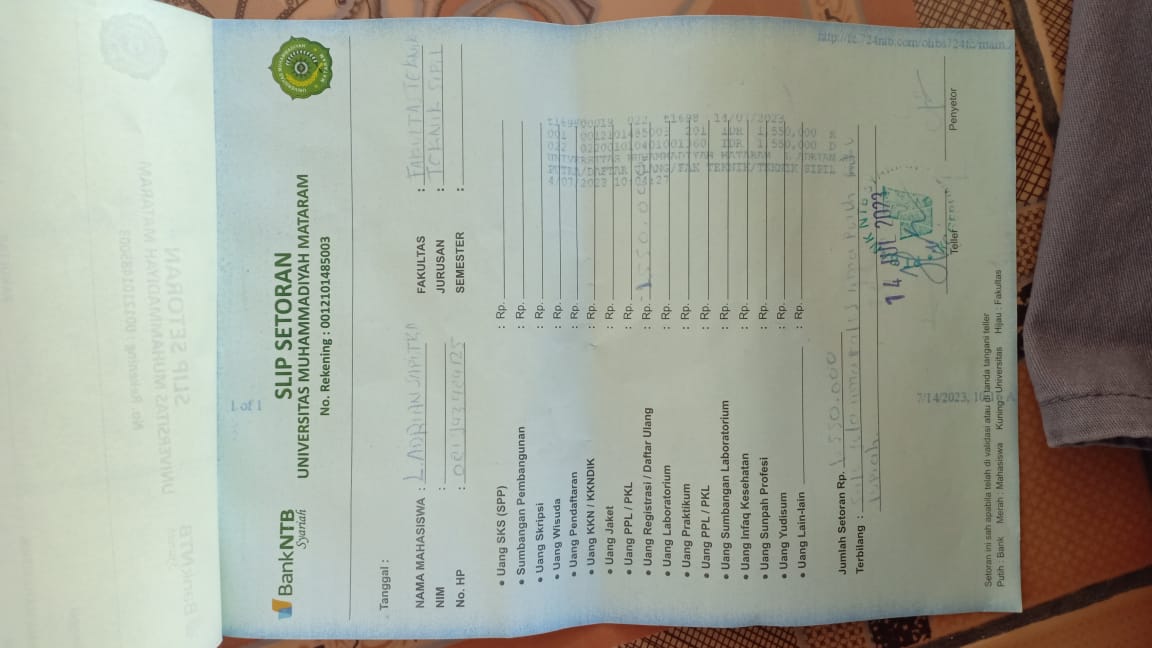 Bank NTB
Syariah
SLIP SETORAN
UNIVERSITAS MUHAMMADIYAH MATARAM
No. Rekening : 0012101485003
1 of 1
http://
Tanggal :
NAMA MAHASISWA : L ADRIAN SAPUTRA
NIM :
No. HP :
FAKULTAS : TEKNIK
JURUSAN : TEKNIK SIPIL
SEMESTER :
• Uang SKS (SPP) : Rp.
• Sumbangan Pembangunan : Rp.
• Uang Skripsi : Rp.
• Uang Wisuda : Rp.
• Uang Pendaftaran : Rp.
• Uang KKN / KKNDIK : Rp.
• Uang Jaket : Rp.
• Uang PPL / PKL : Rp.
• Uang Registrasi / Daftar Ulang : Rp. 1.550.000
• Uang Laboratorium : Rp.
• Uang Praktikum : Rp.
• Uang PPL / PKL : Rp.
• Uang Sumbangan Laboratorium : Rp.
• Uang Infaq Kesehatan : Rp.
• Uang Sunpah Profesi : Rp.
• Uang Yudisum : Rp.
• Uang Lain-lain : Rp.
022 14/07/2023
001 0012101485003 201 IDR 1,550,000
022 IDR 1,550,000 D
UNIVERSITAS MUHAMMADIYAH MATARAM L ADRIAN
PUTRA/DAFTAR ULANG/FAK TEKNIK/TEKNIK SIPIL
Jumlah Setoran Rp. 1.550.000
Terbilang : Satu juta lima ratus lima puluh ribu
rupiah
14 JUL 2023
Teller
Penyetor
7/14/2023,
Setoran ini sah apabila telah di validasi atau di tanda tangani teller
Putih : Bank Merah : Mahasiswa Kuning : Universitas Hijau : Fakultas